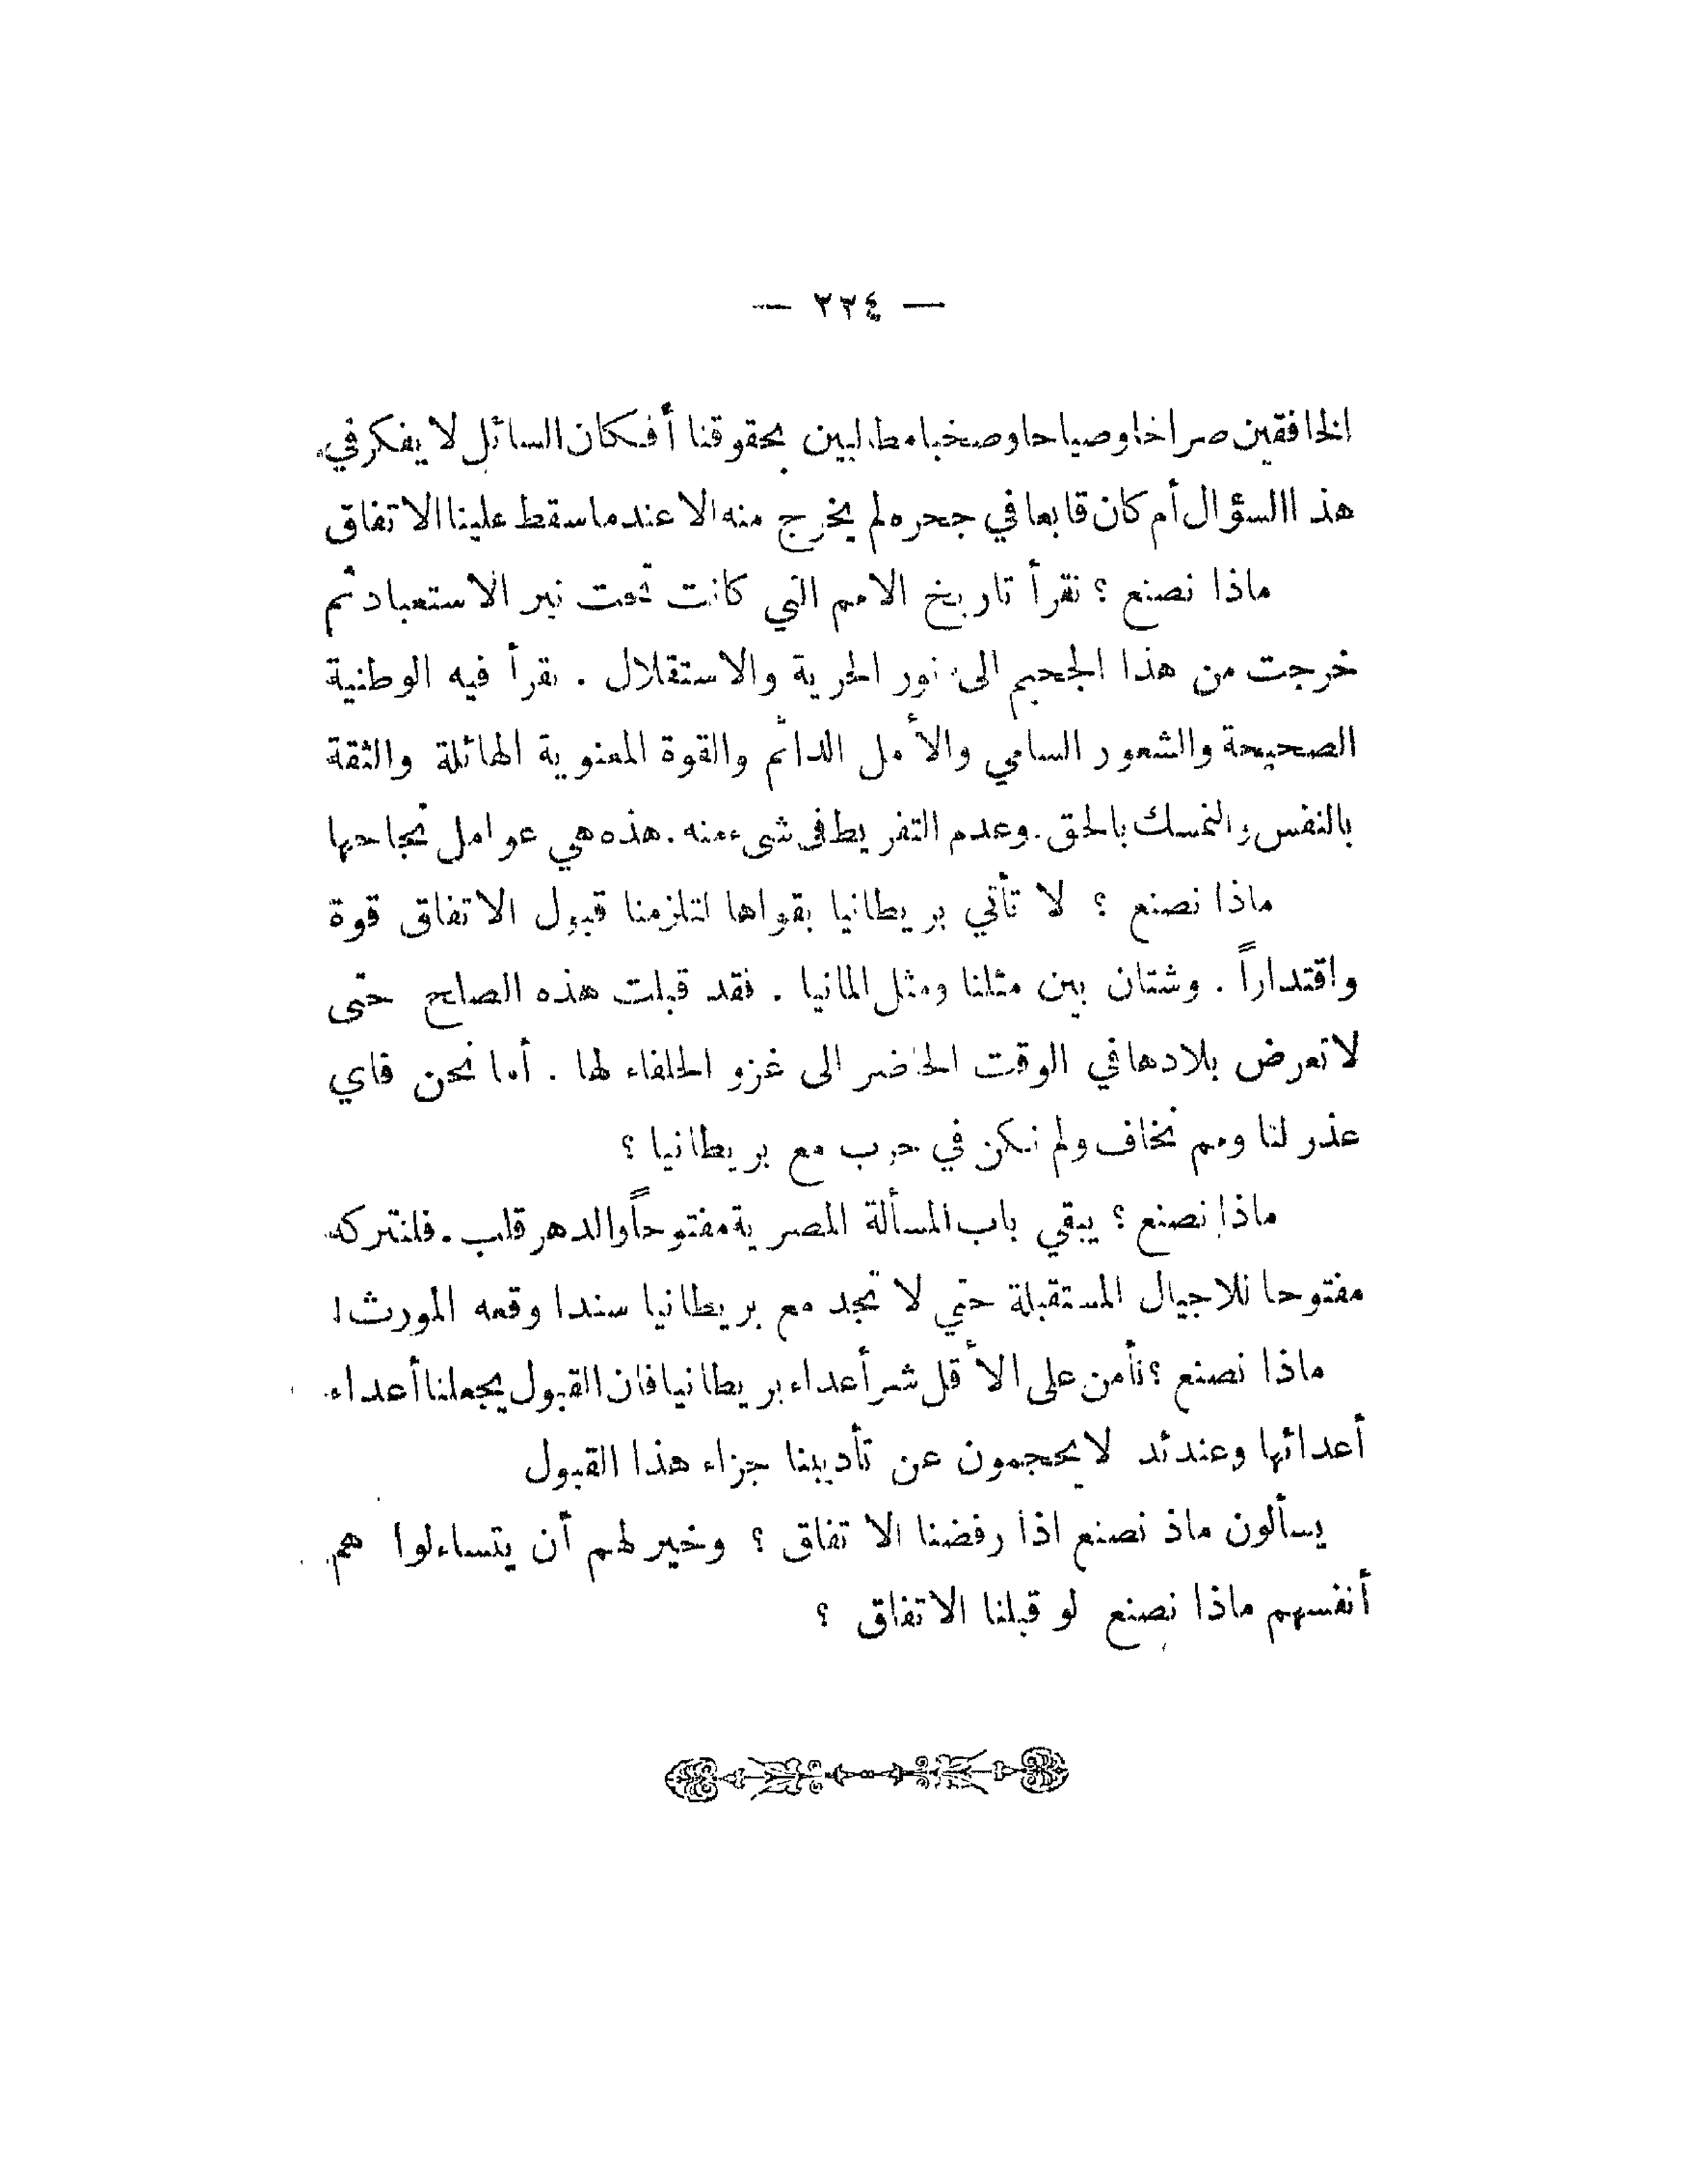 — ٢٢٤ —
الخافقين صراخا وصياحا وصخبا مطالبين بحقوقنا أفكان السائل لا يفكر في
هذا السؤال أم كان قابعا في جحره لم يخرج منه الا عند ما سقط علينا الاتفاق
ماذا نصنع ؟ نقرأ تاريخ الامم التي كانت تحت نير الاستعباد ثم
خرجت من هذا الجحيم الى نور الحرية والاستقلال . نقرأ فيه الوطنية
الصحيحة والشعور السامي والأمل الدائم والقوة المعنوية الهائلة والثقة
بالنفس والتمسك بالحق . وعدم التفريط فى شىء منه . هذه هي عوامل نجاحها
ماذا نصنع ؟ لا تأتي بريطانيا بقواها لتلزمنا قبول الاتفاق قوة
واقتداراً . وشتان بين مثلنا ومثل المانيا . فقد قبلت هذه الصلح حتى
لا تعرض بلادها في الوقت الحاضر الى غزو الحلفاء لها . أما نحن فاي
عذر لنا ومم نخاف ولم نكن في حرب مع بريطانيا ؟
ماذا نصنع ؟ يبقي باب المسألة المصرية مفتوحاً والدهر قلب . فلنتركه
مفتوحا للاجيال المستقبلة حتي لا تجد مع بريطانيا سندا وقعه المورث !
ماذا نصنع ؟ نأمن على الأقل شر أعداء بريطانيا فان القبول يجعلنا أعداء
أعدائها وعندئد لا يحجمون عن تأديبنا جزاء هذا القبول
يسألون ماذ نصنع اذا رفضنا الاتفاق ؟ وخير لهم أن يتساءلوا هم
أنفسهم ماذا نصنع لو قبلنا الاتفاق ؟